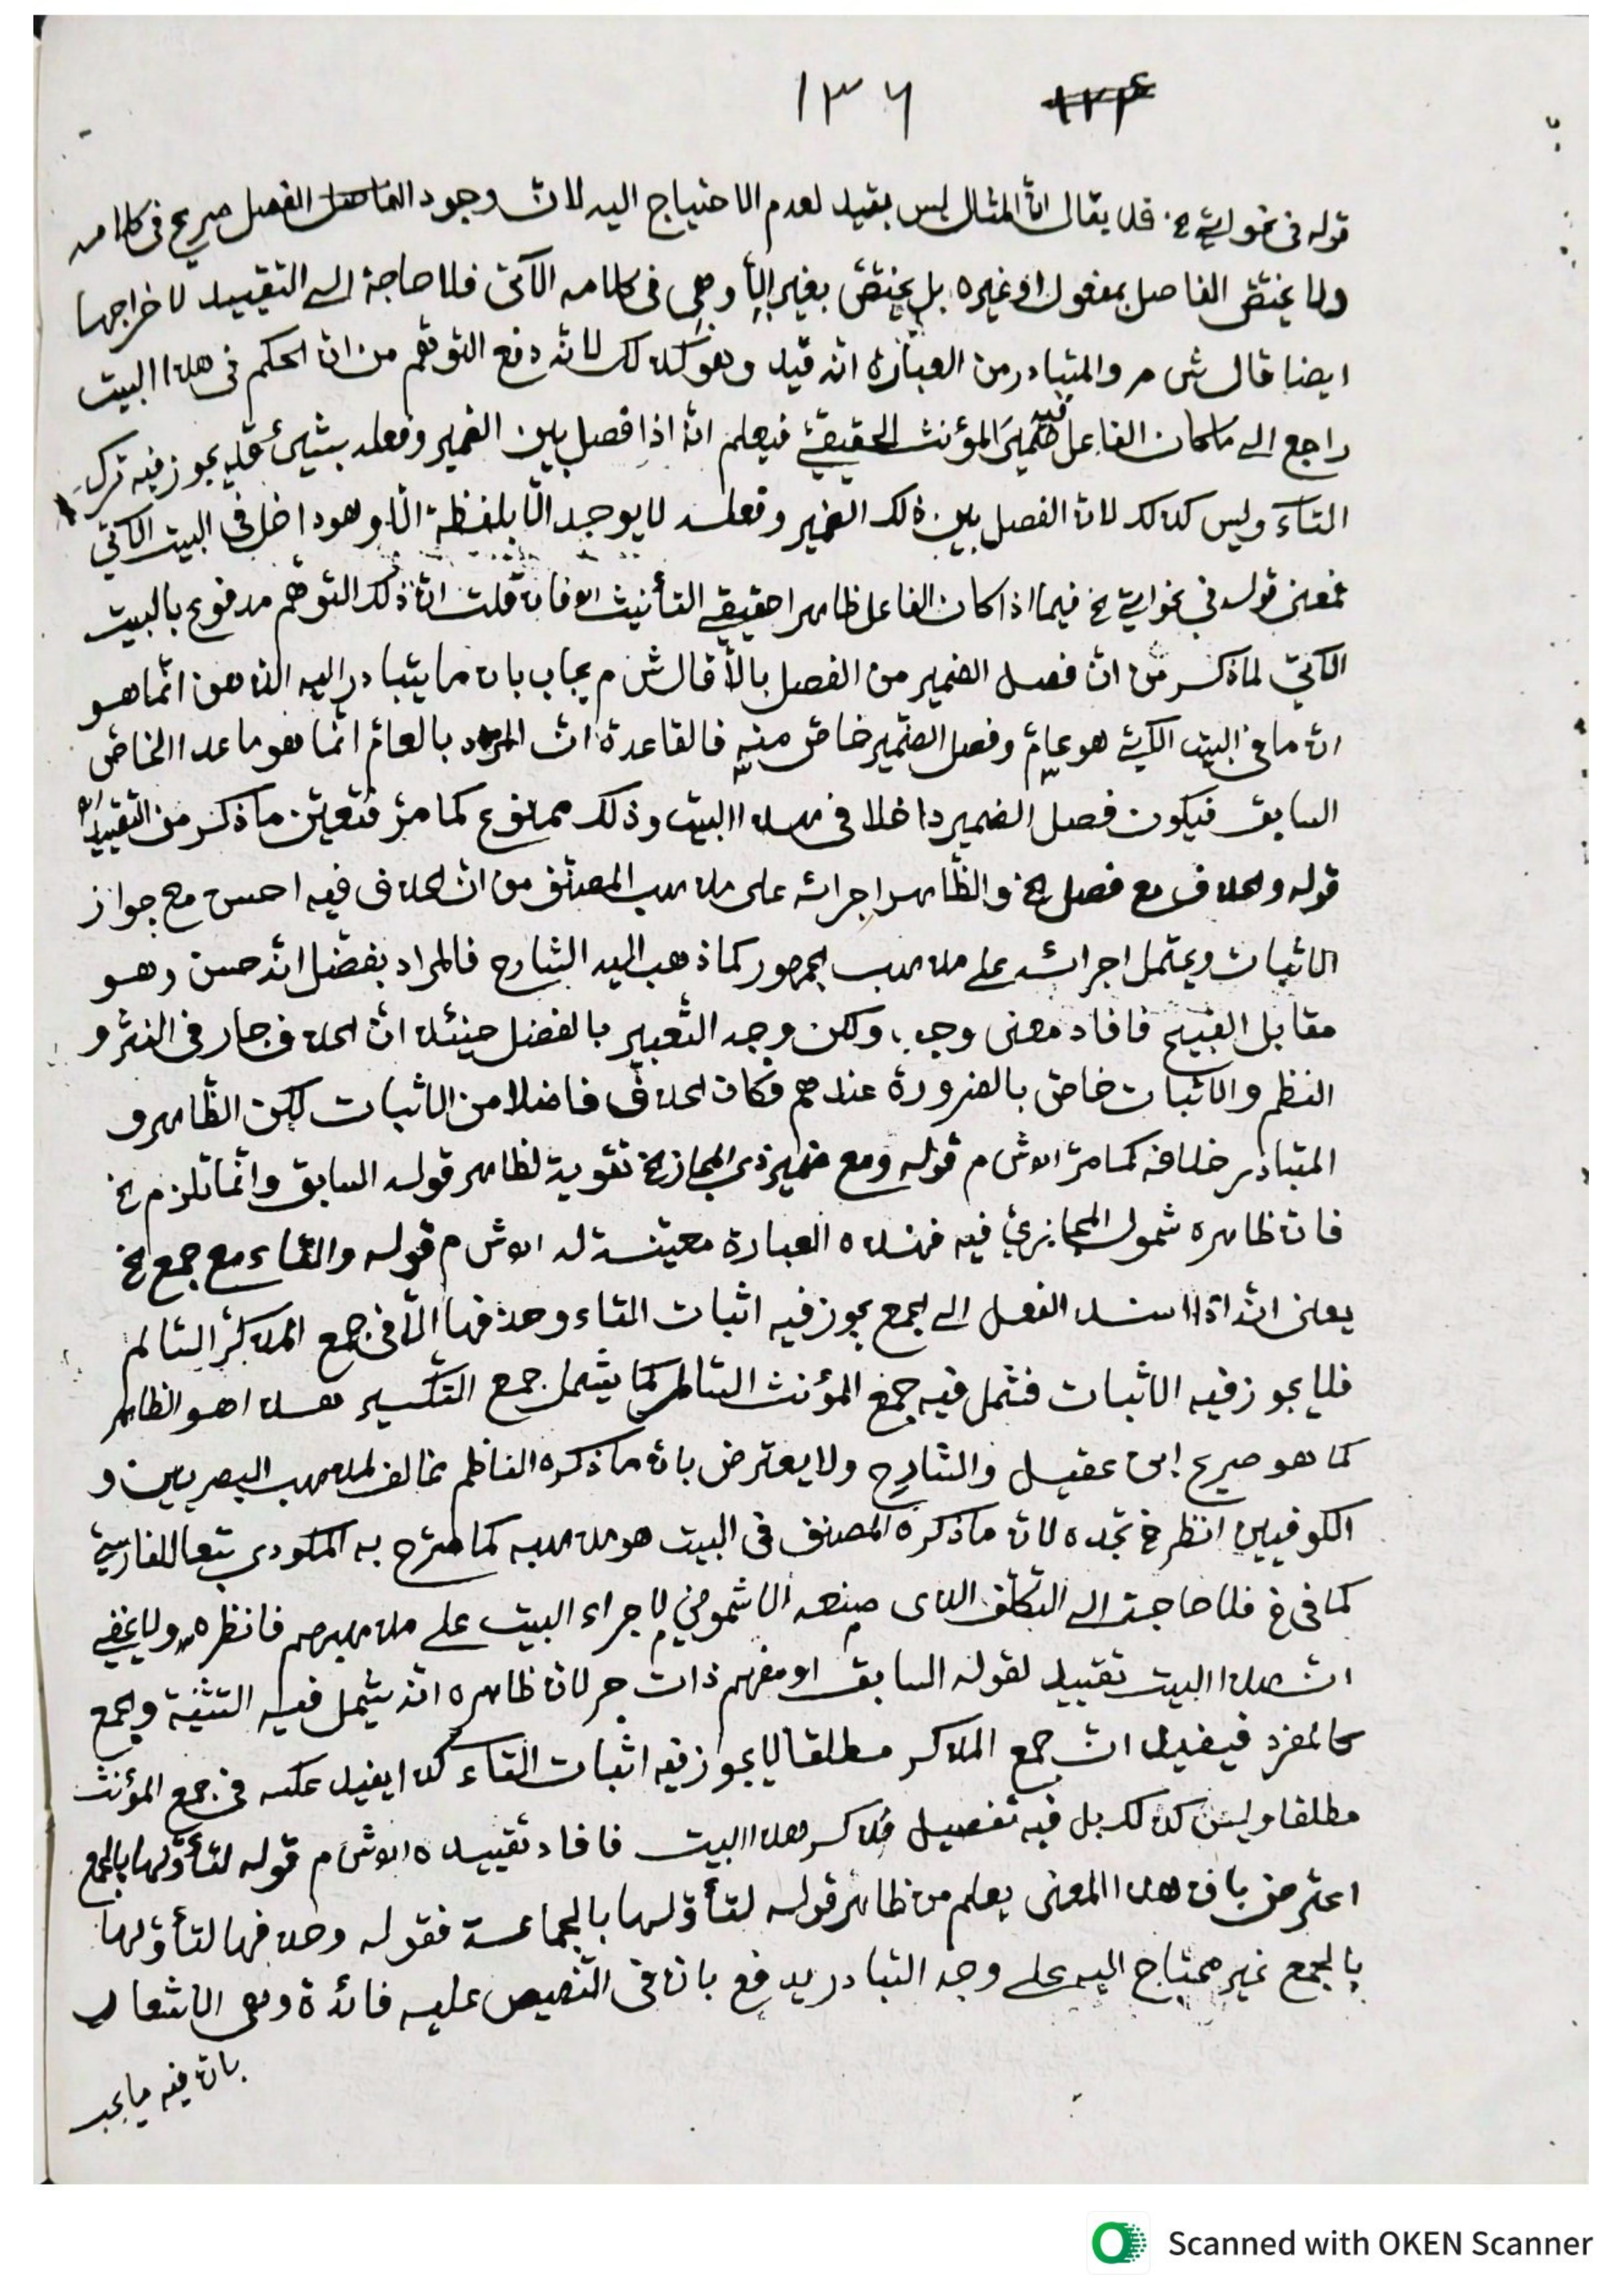 ١٣٦ ١٢٤
قوله فى نحو اتى الخ فلا يقال ان المثال ليس بقيد لعدم الاحتياج اليه لان وجود الفصل صريح فى كلامه
ولا يختص الفاصل بمفعول او غيره بل يختص بغير إلّا وهى فى كلامه الآتى فلا حاجة الى التقييد لاخراجها
ايضا قال ش م والمتبادر من العبارة انه قيد وهو كذلك لانه دفع التوهّم من ان الحكم فى هذا البيت
راجع الى ما كان الفاعل فيه ضمير المؤنث الحقيقىّ فيعلم انه اذا فصل بين الضمير وفعله بشىء يجوز فيه ترك
التاء وليس كذلك لان الفصل بين ذلك الضمير وفعله لا يوجد الّا بلفظة الّا وهو داخل فى البيت الآتى
فمعنى قوله فى نحو اتى الخ فيما اذا كان الفاعل ظاهرا حقيقى التأنيث اه فان قلت ان ذلك التوهّم مدفوع بالبيت
الآتى لما ذكر من ان فصل الضمير من الفصل بالّا قال ش م يجاب بان ما يتبادر اليه الذهن انّما هو
ان ما فى البيت الآتى هو عامّ وفصل الضمير خاصّ منه فالقاعدة ان المراد بالعامّ انّما هو ما عدا الخاصّ
السابق فيكون فصل الضمير داخلا فى هذا البيت وذلك ممنوع كما مرّ فتعيّن ما ذكر من التقييد اه
قوله والحذف مع فصل الخ والظاهر اجرائه على مذهب المصنّف من ان الحذف فيه احسن مع جواز
الاثبات ويحتمل اجرائه على مذهب الجمهور كما ذهب اليه الشارح فالمراد بفضّل انه حسن وهو
مقابل القبيح فافاد معنى وجب ولكن وجه التّعبير بالفضل حينئذ انّ الحذف جار فى النثر و
النظم والاثبات خاصّ بالضرورة عندهم فكان الحذف فاضلا من الاثبات لكن الظّاهر و
المتبادر خلافه كما مرّ اه ش م قوله ومع ضمير ذى المجاز الخ تقوية لظاهر قوله السابق وانّما تلزم الخ
فان ظاهره شمول المجازىّ فيه فهذه العبارة معيّنة له اه ش م قوله والتاء مع جمع الخ
يعنى انه اذا اسند الفعل الى الجمع يجوز فيه اثبات التاء وحذفها الّا فى جمع المذكّر السّالم
فلا يجوز فيه الاثبات فشمل فيه جمع المؤنث السّالم كما يشمل جمع التكسير هذا هو الظاهر
كما هو صريح ابن عقيل والشارح ولا يعترض بان ما ذكره الناظم مخالف لمذهب البصريين و
الكوفيين انظر خ تجده لان ما ذكره المصنف فى البيت هو مذهبه كما صرّح به المكودى تبعا للفارسىّ
كما فى خ فلا حاجة الى التكلّف الذى صنعه الاشمونى لاجراء البيت على مذهبهم فانظره ولا يخفى
ان هذا البيت تقييد لقوله السابق او مفهم ذات حر لان ظاهره انه يشمل فيه التثنية والجمع
كالمفرد فيفيد ان جمع المذكر مطلقا لا يجوز فيه اثبات التاء كذا يفيد عكسه فى جمع المؤنث
مطلقا وليس كذلك بل فيه تفصيل فذكر هذا البيت فافاد تقييده اه ش م قوله لتأوّلها بالجمع
اعترض بان هذا المعنى يعلم من ظاهر قوله لتأوّلها بالجماعة فقوله وحذفها لتأوّلها
بالجمع غير محتاج اليه على وجه التبادر يدفع بان فى التنصيص عليه فائدة وهى الاشعار
بان فيه ما يجب
Scanned with OKEN Scanner